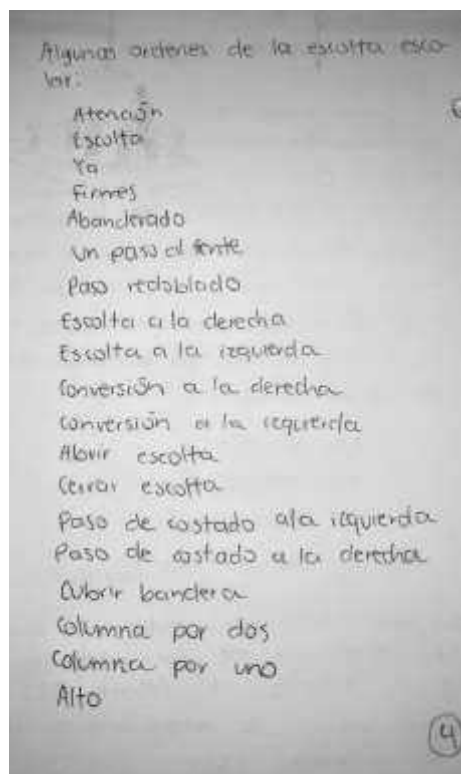 Algunas ordenes de la escolta esco-
lar.
Atención
Escolta
Ya
Firmes
Abanderado
Un paso al frente
Paso redoblado
Escolta a la derecha
Escolta a la izquierda
Conversión a la derecha
Conversión a la izquierda
Abrir escolta
Cerrar escolta
Paso de costado a la izquierda
Paso de costado a la derecha
Cubrir bandera
Columna por dos
Columna por uno
Alto
4